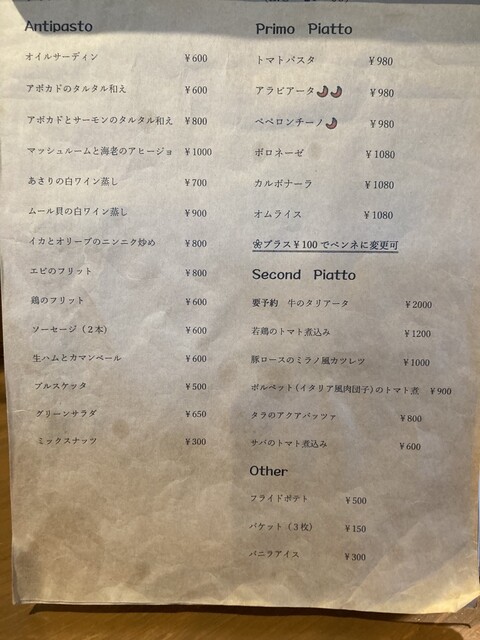 Antipasto
オイルサーディン ¥600
アボカドのタルタル和え ¥600
アボカドとサーモンのタルタル和え ¥800
マッシュルームと海老のアヒージョ ¥1000
あさりの白ワイン蒸し ¥700
ムール貝の白ワイン蒸し ¥900
イカとオリーブのニンニク炒め ¥800
エビのフリット ¥800
鶏のフリット ¥600
ソーセージ（２本） ¥600
生ハムとカマンベール ¥600
ブルスケッタ ¥500
グリーンサラダ ¥650
ミックスナッツ ¥300
Primo Piatto
トマトパスタ ¥980
アラビアータ🌶🌶 ¥980
ペペロンチーノ🌶 ¥980
ボロネーゼ ¥1080
カルボナーラ ¥1080
オムライス ¥1080
❀プラス¥100でペンネに変更可
Second Piatto
要予約 牛のタリアータ ¥2000
若鶏のトマト煮込み ¥1200
豚ロースのミラノ風カツレツ ¥1000
ポルペット(イタリア風肉団子)のトマト煮 ¥900
タラのアクアパッツァ ¥800
サバのトマト煮込み ¥600
Other
フライドポテト ¥500
バケット（３枚） ¥150
バニラアイス ¥300